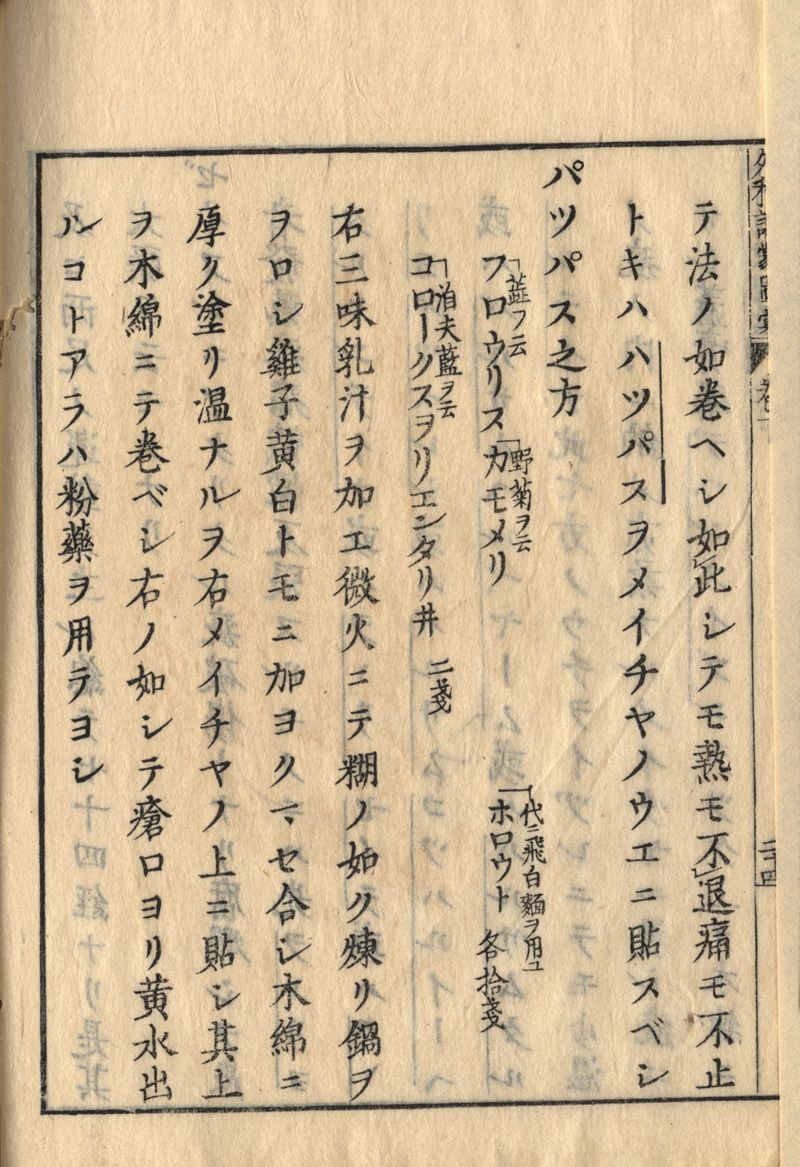 テ法ノ如巻ヘシ如此シテモ熱モ不退痛モ不止
トキハハツパスヲメイチヤノウエニ貼スベシ
パツパス之方
フロウリスカモメリ ホロウト 各拾戔
「蓝フ云 「野菊ヲ云 「代ニ飛白麺ヲ用ユ
コロークスヲリエンタリ井 二戔
「泊夫藍ヲ云
右三味乳汁ヲ加エ微火ニテ糊ノ如ク煉リ鍋ヲ
ヲロシ雞子黄白トモニ加ヨクマセ合シ木綿ニ
厚ク塗リ温ナルヲ右メイチヤノ上ニ貼シ其上
ヲ木綿ニテ巻ベシ右ノ如シテ瘡口ヨリ黄水出
ルコトアラハ粉藥ヲ用テヨシ